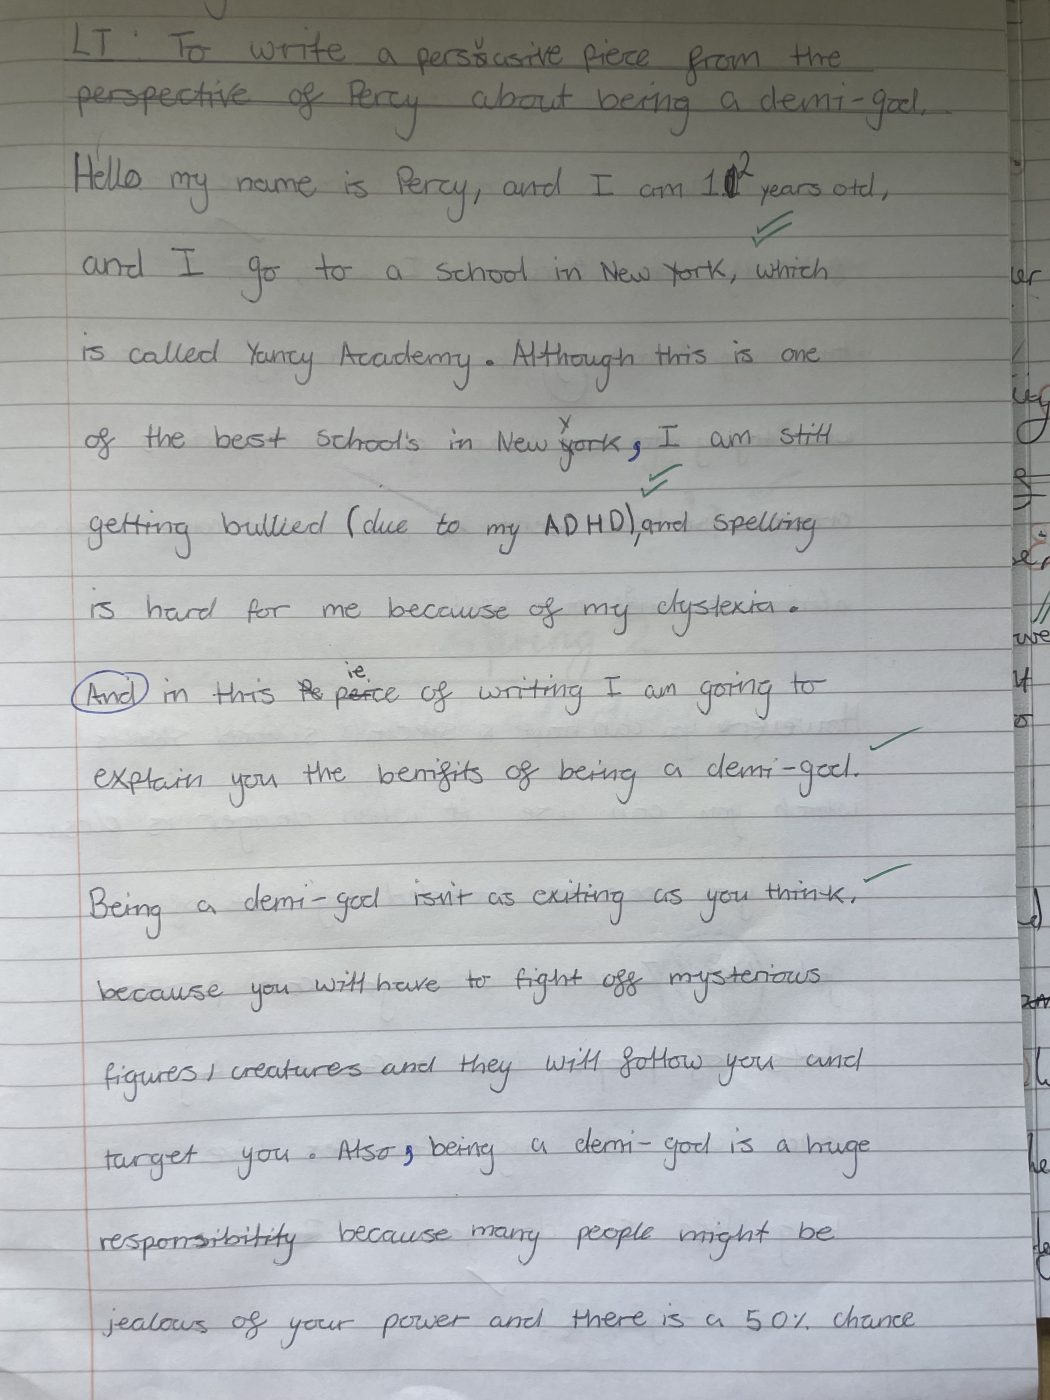 LI: To write a persuasive piece from the
perspective of Percy about being a demi-god.
Hello my name is Percy, and I am 12 years old,
and I go to a school in New York, which
is called Yancy Academy. Although this is one
of the best school's in New York, I am still
getting bullied (due to my ADHD), and spelling
is hard for me because of my dyslexia.
And in this piece of writing I am going to
explain you the benifits of being a demi-god.
Being a demi-god isn't as exiting as you think,
because you will have to fight off mysterious
figures / creatures and they will follow you and
target you. Also, being a demi-god is a huge
responsibility because many people might be
jealous of your power and there is a 50% chance